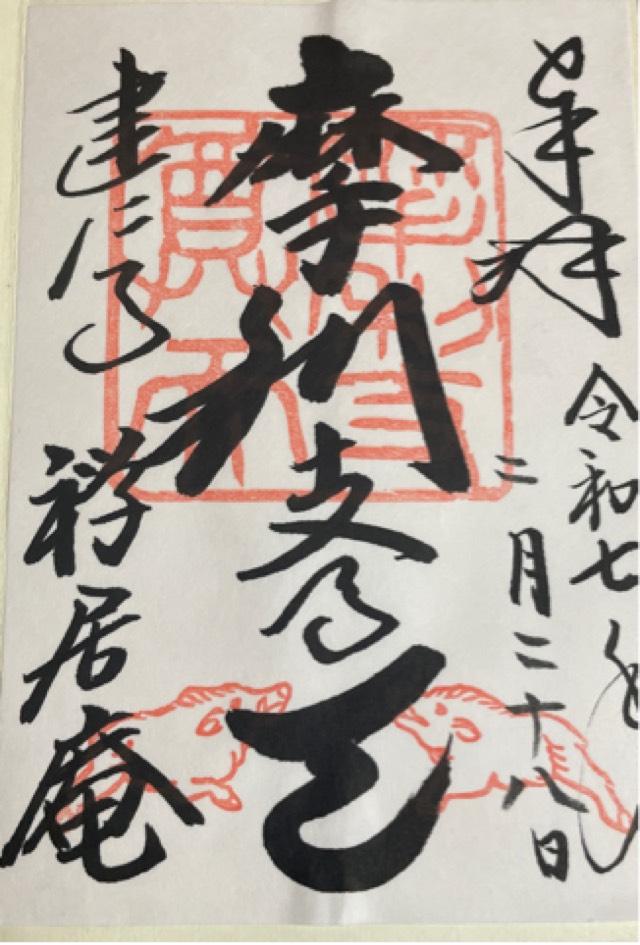 奉拝
令和七年
二月二十八日
摩利支尊天
建仁寺
禅居庵